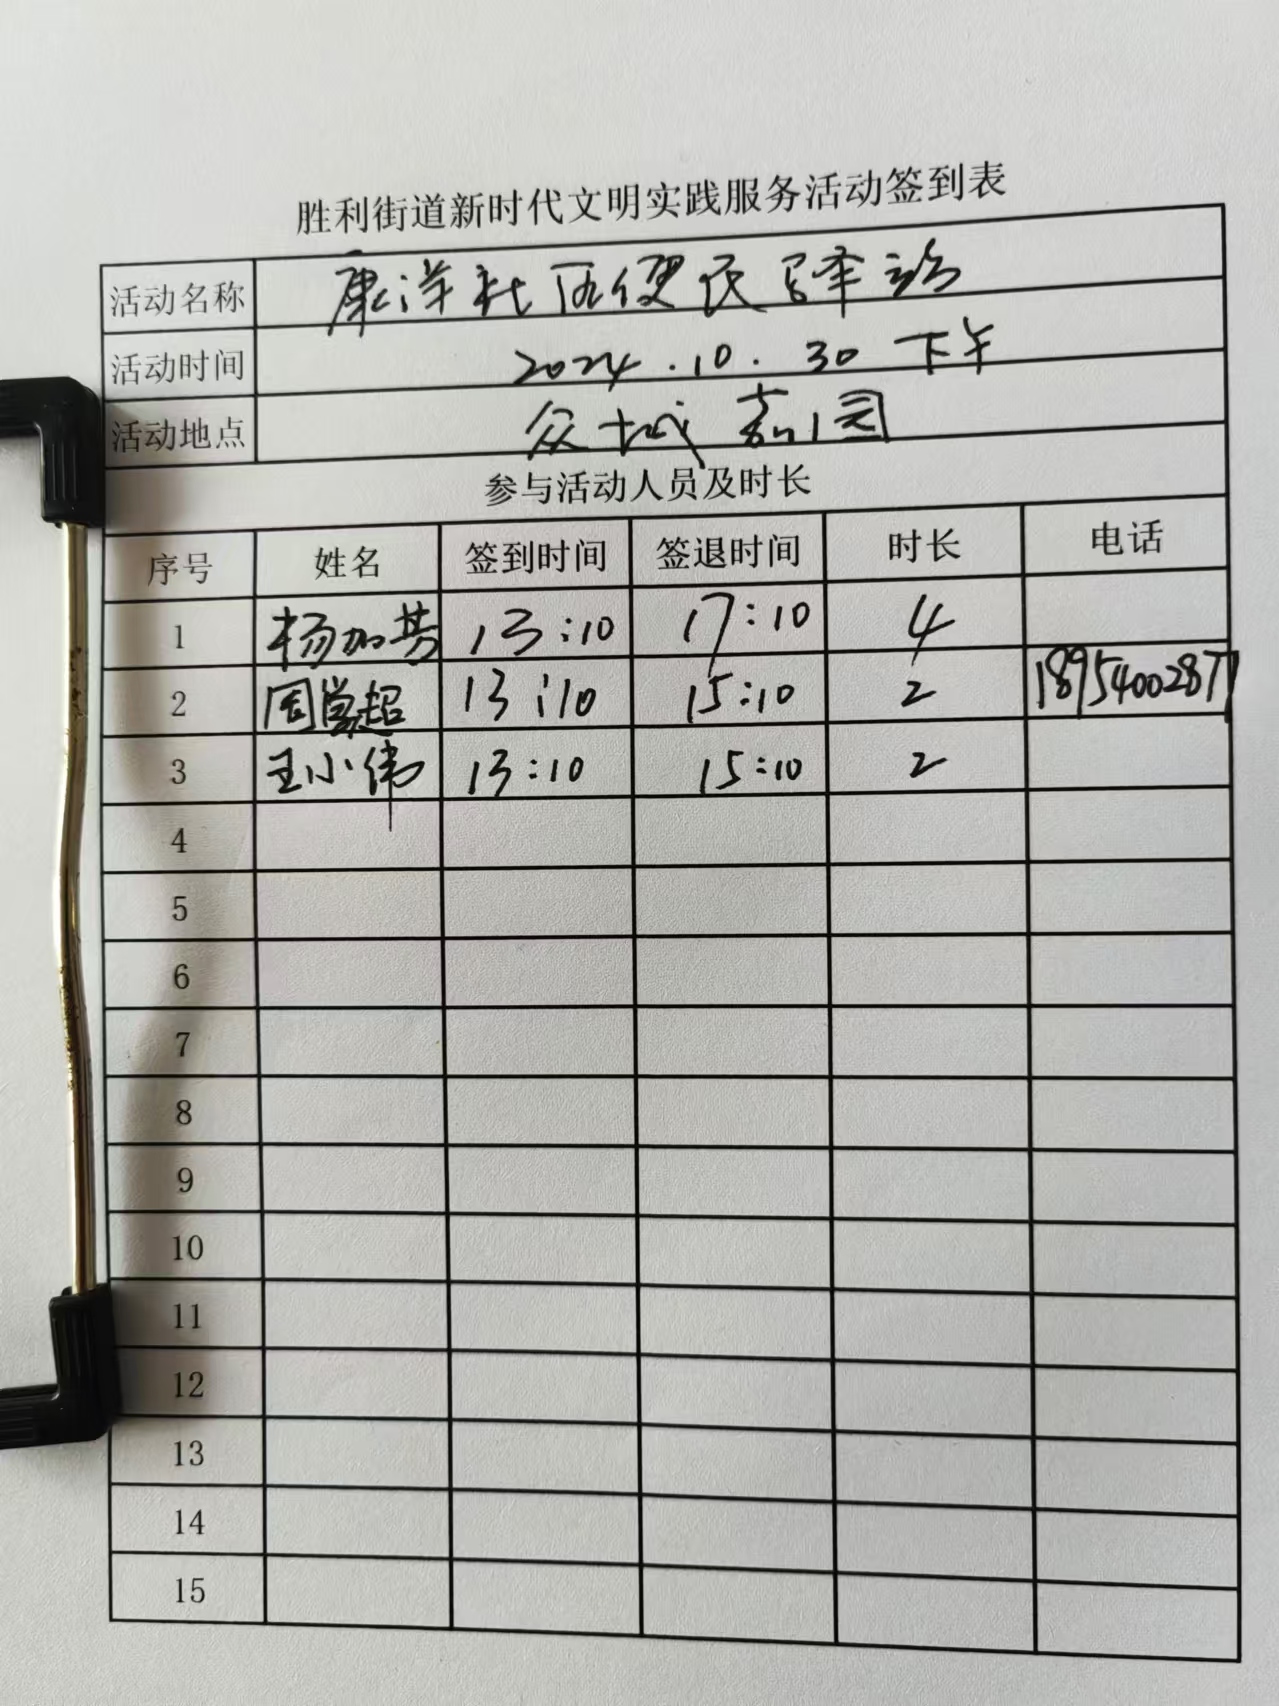 胜利街道新时代文明实践服务活动签到表
活动名称 康洋社区便民驿站
活动时间 2024.10.30 下午
活动地点 众城嘉园
参与活动人员及时长
序号 姓名 签到时间 签退时间 时长 电话
1 杨加芳 13:10 17:10 4
2 周学超 13:10 15:10 2 18954002877
3 王小伟 13:10 15:10 2
4
5
6
7
8
9
10
11
12
13
14
15